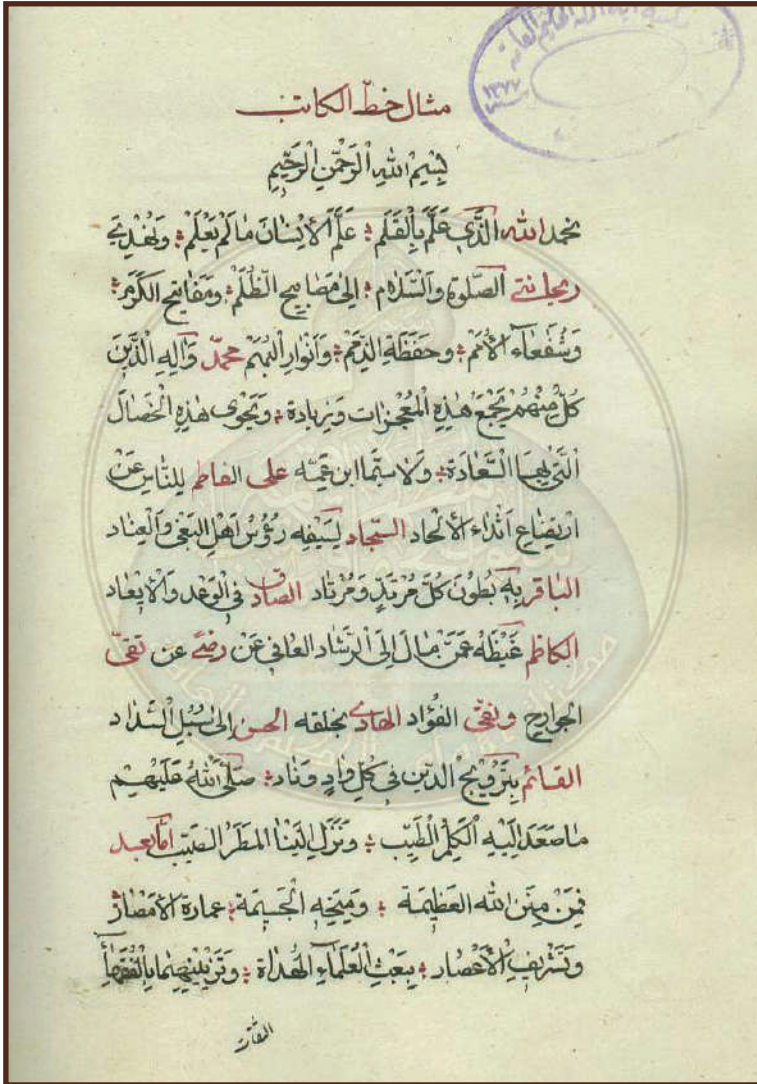 مكتبة آية الله الحكيم العامة
١٣٧٧
مثال خط الكاتب
بِسْمِ اللهِ الرَّحْمٰنِ الرَّحِيمِ
نحمد الله الَّذِي عَلَّمَ بِالْقَلَمِ عَلَّمَ الْاِنْسَانَ مَالَمْ يَعْلَمْ وَنُهْدِي
الصَّلٰوةِ وَالسَّلَامِ اِلىٰ مَصَابِيحِ الظُّلَمْ وَمَفَاتِيحِ الْكَرَمِ
وَشُفَعَاءِ الْاُمَمْ وَحَفَظَةِ الذِّمَمْ وَاَنْوَارِ الْبُهَمْ محمّد وَآلِهِ الَّذِينَ
كُلٌّ مِنْهُمْ يَجْمَعُ هٰذِهِ الْمُعْجِزَات وَزِيادة وَيَحْوى هٰذِهِ الْخِصَالَ
الَّتِي بِهَا السَّعَادَة وَلَاسِيَّمَا ابن عَمِّه على الفاطم لِلنَّاسِ عَنْ
ارتِضَاعِ اَثْدَاء الْاِلْحاد السجّاد لِسَيْفِه رُؤُسُ اَهْلِ الْبَغْى وَالْعِنَاد
الباقر بِهِ بُطُونَ كُلِّ مُرْتَدٍّ وَمُرْتَاد الصادق فِي الْوَعْدِ وَالْاِيعَاد
الكاظم غَيْظَهُ عَمَّنْ مَالَ اِلَى الرَّشَاد العافى عَنْ رضىً عن تقىّ
الجوارح ونقىّ الفُؤَاد الهادى بخلقه الحسن اِلىٰ سُبُلِ السَّدَاد
القائم بِتَرْوِيجِ الدّين فى كُلِّ وَادٍ وَنَاد صَلَّى اللهُ عَلَيْهِم
مَا صَعَدَ اِلَيْهِ الْكَلِمُ الطَّيِّب وَنَزَلَ اِلَيْنَا الْمَطَرُ الصَّيِّب امّا بعد
فَمِنْ مِنَنِ اللهِ الْعَظِيمَة وَمِنَحِهِ الْجَسِيمَة عمارة الْاَمْصَارْ
وَتَشْرِيفِ الْاَعْصَار بِبَعْثِ الْعُلَمَاءِ الْهُدَاة وَتَزْيِينِهِمَا بِالْفُقَهَاءِ
الثقات